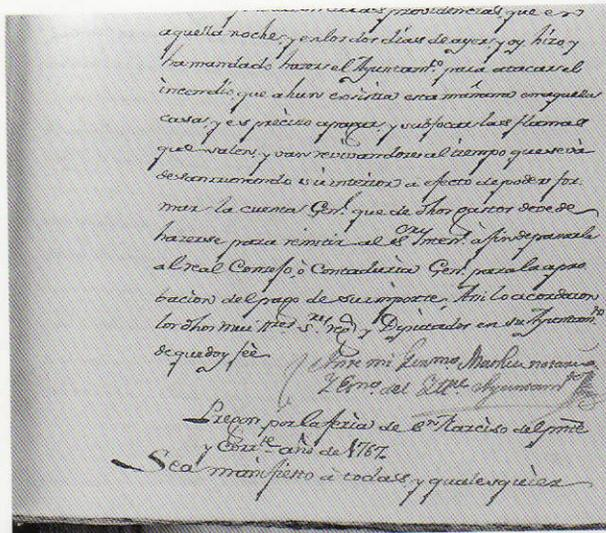 providencias, que en
aquella noche, y en los dos dias de ayer, y oy hizo y
ha mandado hazer el Ayuntam.to para atacar el
incendio, que ahun existia esta mañana en aquella
casa, y es preciso apagar, y sufocar las flamas
que salen, y van revivandose al tiempo que se và
desenrunando su interior a efecto de poder for
mar la cuenta Gen.l que de dhos gastos deve de
hazerse para remitir al Inten.te à fin de passarla
al real Consejo, ò Contaduria Gen.l para la apro
bacion del pago de su importe. Assi lo acordaron
los dhos mui Iltres S.res reg.s y Diputados en su Ayuntam.to
de que doy fèe
Ante mi Notario
y Esno. del Iltre. Ayuntam.to
Pregon por la feria de S.n Narciso del pnte
y Corr.te año de 1767
Sea manifiesto à todas y qualesquier